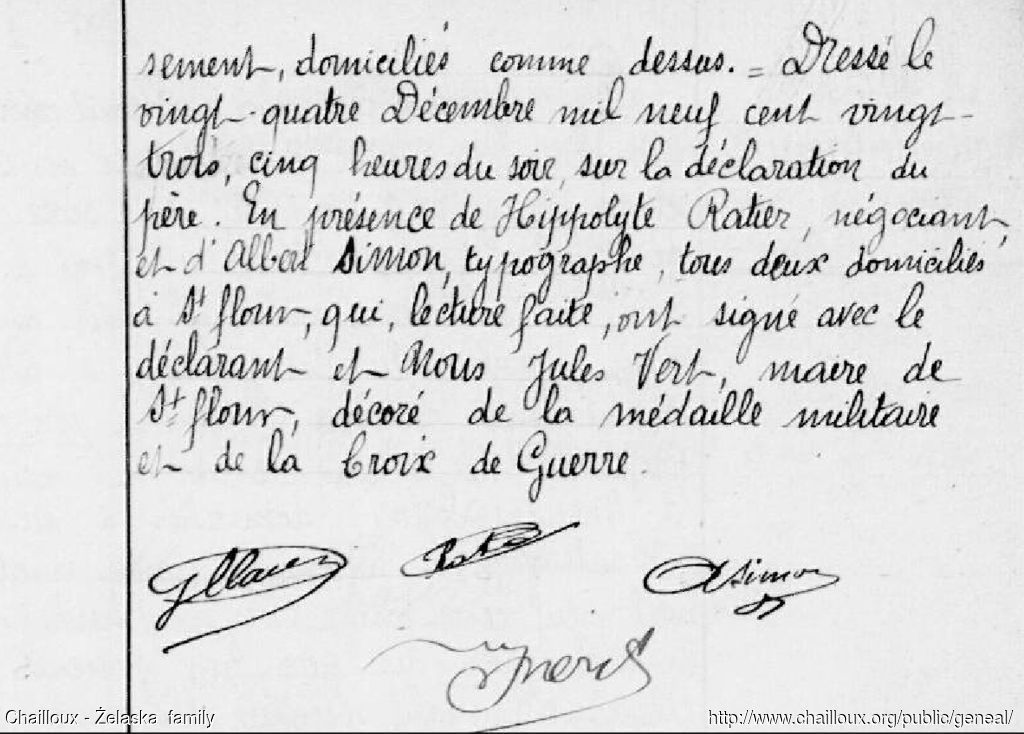 sement, domiciliés comme dessus. = Dressé le
vingt-quatre Décembre mil neuf cent vingt-
trois, cinq heures du soir, sur la déclaration du
père. En présence de Hippolyte Ratier, négociant,
et d'Albert Simon, typographe, tous deux domiciliés
à St flour, qui, lecture faite, ont signé avec le
déclarant et Nous Jules Vert, maire de
St flour, décoré de la médaille militaire
et de la Croix de Guerre.
ASimon
Chailloux - Żelaska family
http://www.chailloux.org/public/geneal/